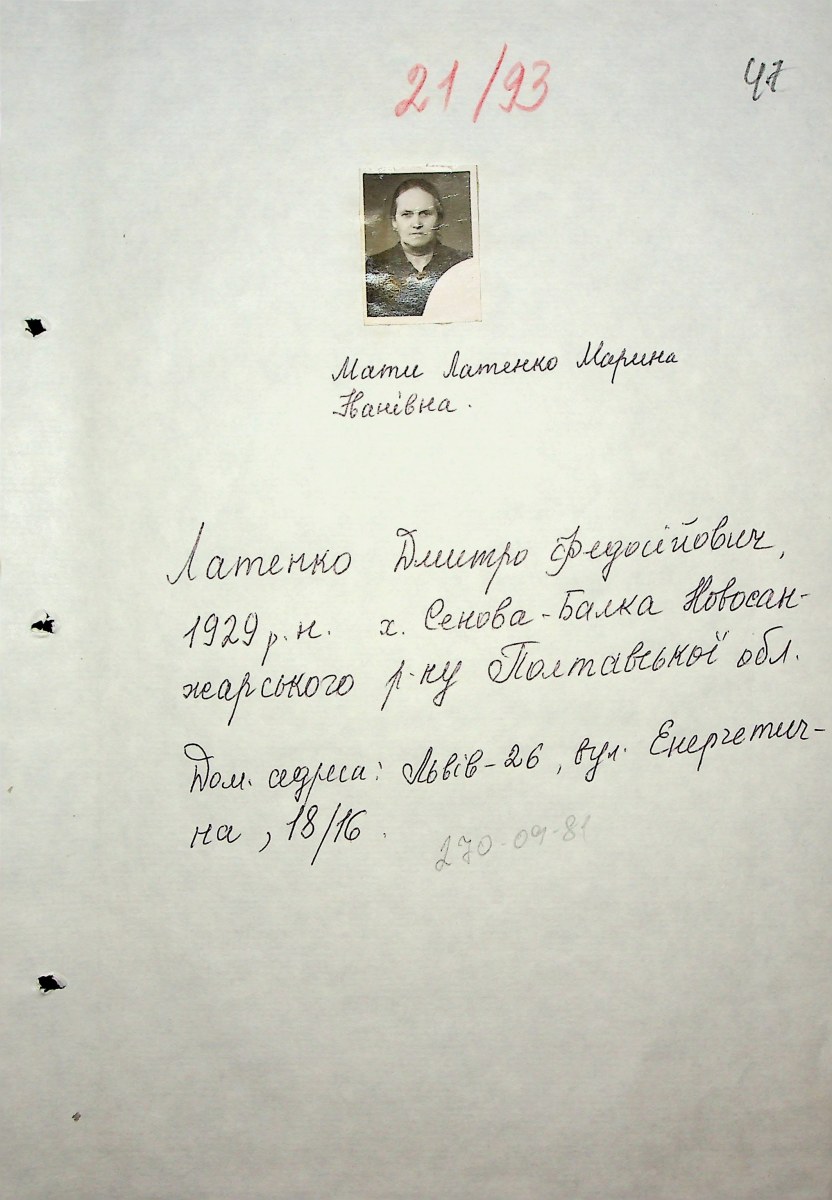 21/93
47
Мати Латенко Марина
Іванівна.
Латенко Дмитро Федосійович,
1929 р. н. х. Сенова-Балка Новосан-
жарського р-ну Полтавської обл.
Дом. адреса: Львів-26, вул. Енергетич-
на, 18/16.
270-09-81